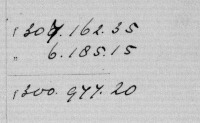 $ 307.162.35
" 6.185.15
$ 300.977.20